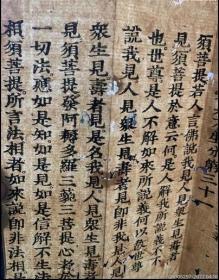 分第三十
須菩提若人言佛說我見人見眾生見壽者
見須菩提於意云何是人解我所說義不
也世尊是人不解如來所說義何以故世尊
說我見人見眾生見壽者見即非我見人見
眾生見壽者見是名我見人見眾生見壽者
見須菩提發阿耨多羅三藐三菩提心者
一切法應如是知如是見如是信解不生法
相須菩提所言法相者如來說即非法相